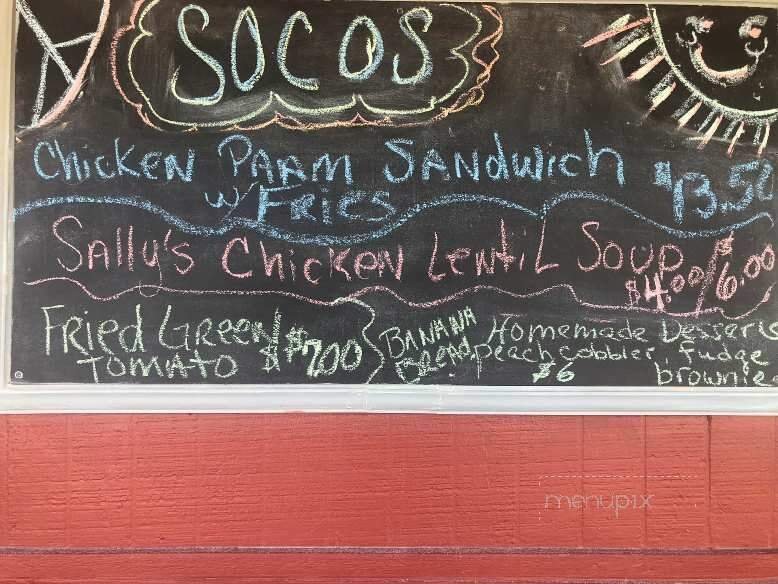 SOCOS
Chicken Parm Sandwich $13.50
w/ Fries
Sally's Chicken Lentil Soup $4.00/$6.00
Fried Green
Tomato $7.00
Banana
Bread
Homemade Desserts
peach cobbler, fudge
$6 brownie
menupix